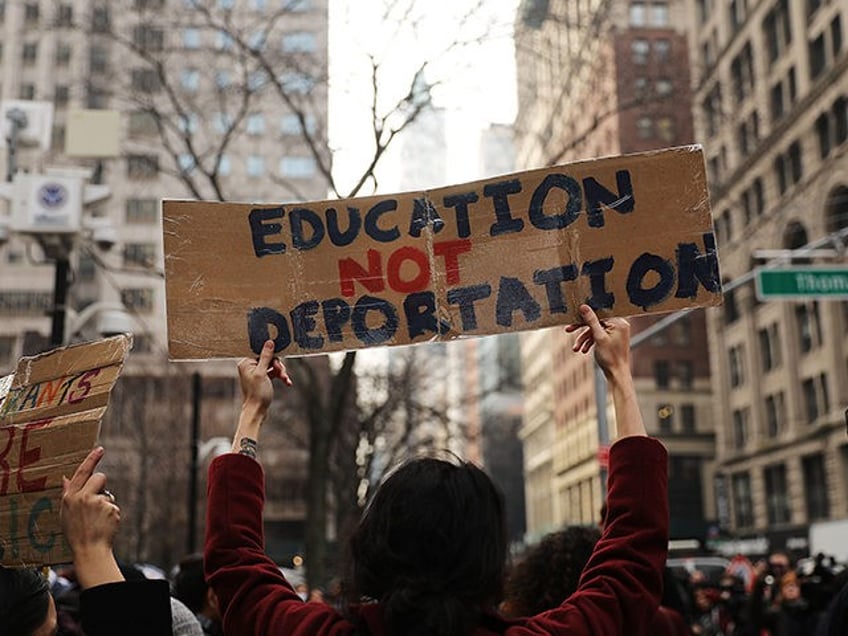 EDUCATION
NOT
DEPORTATION
ANTS
RE
IC
Thom